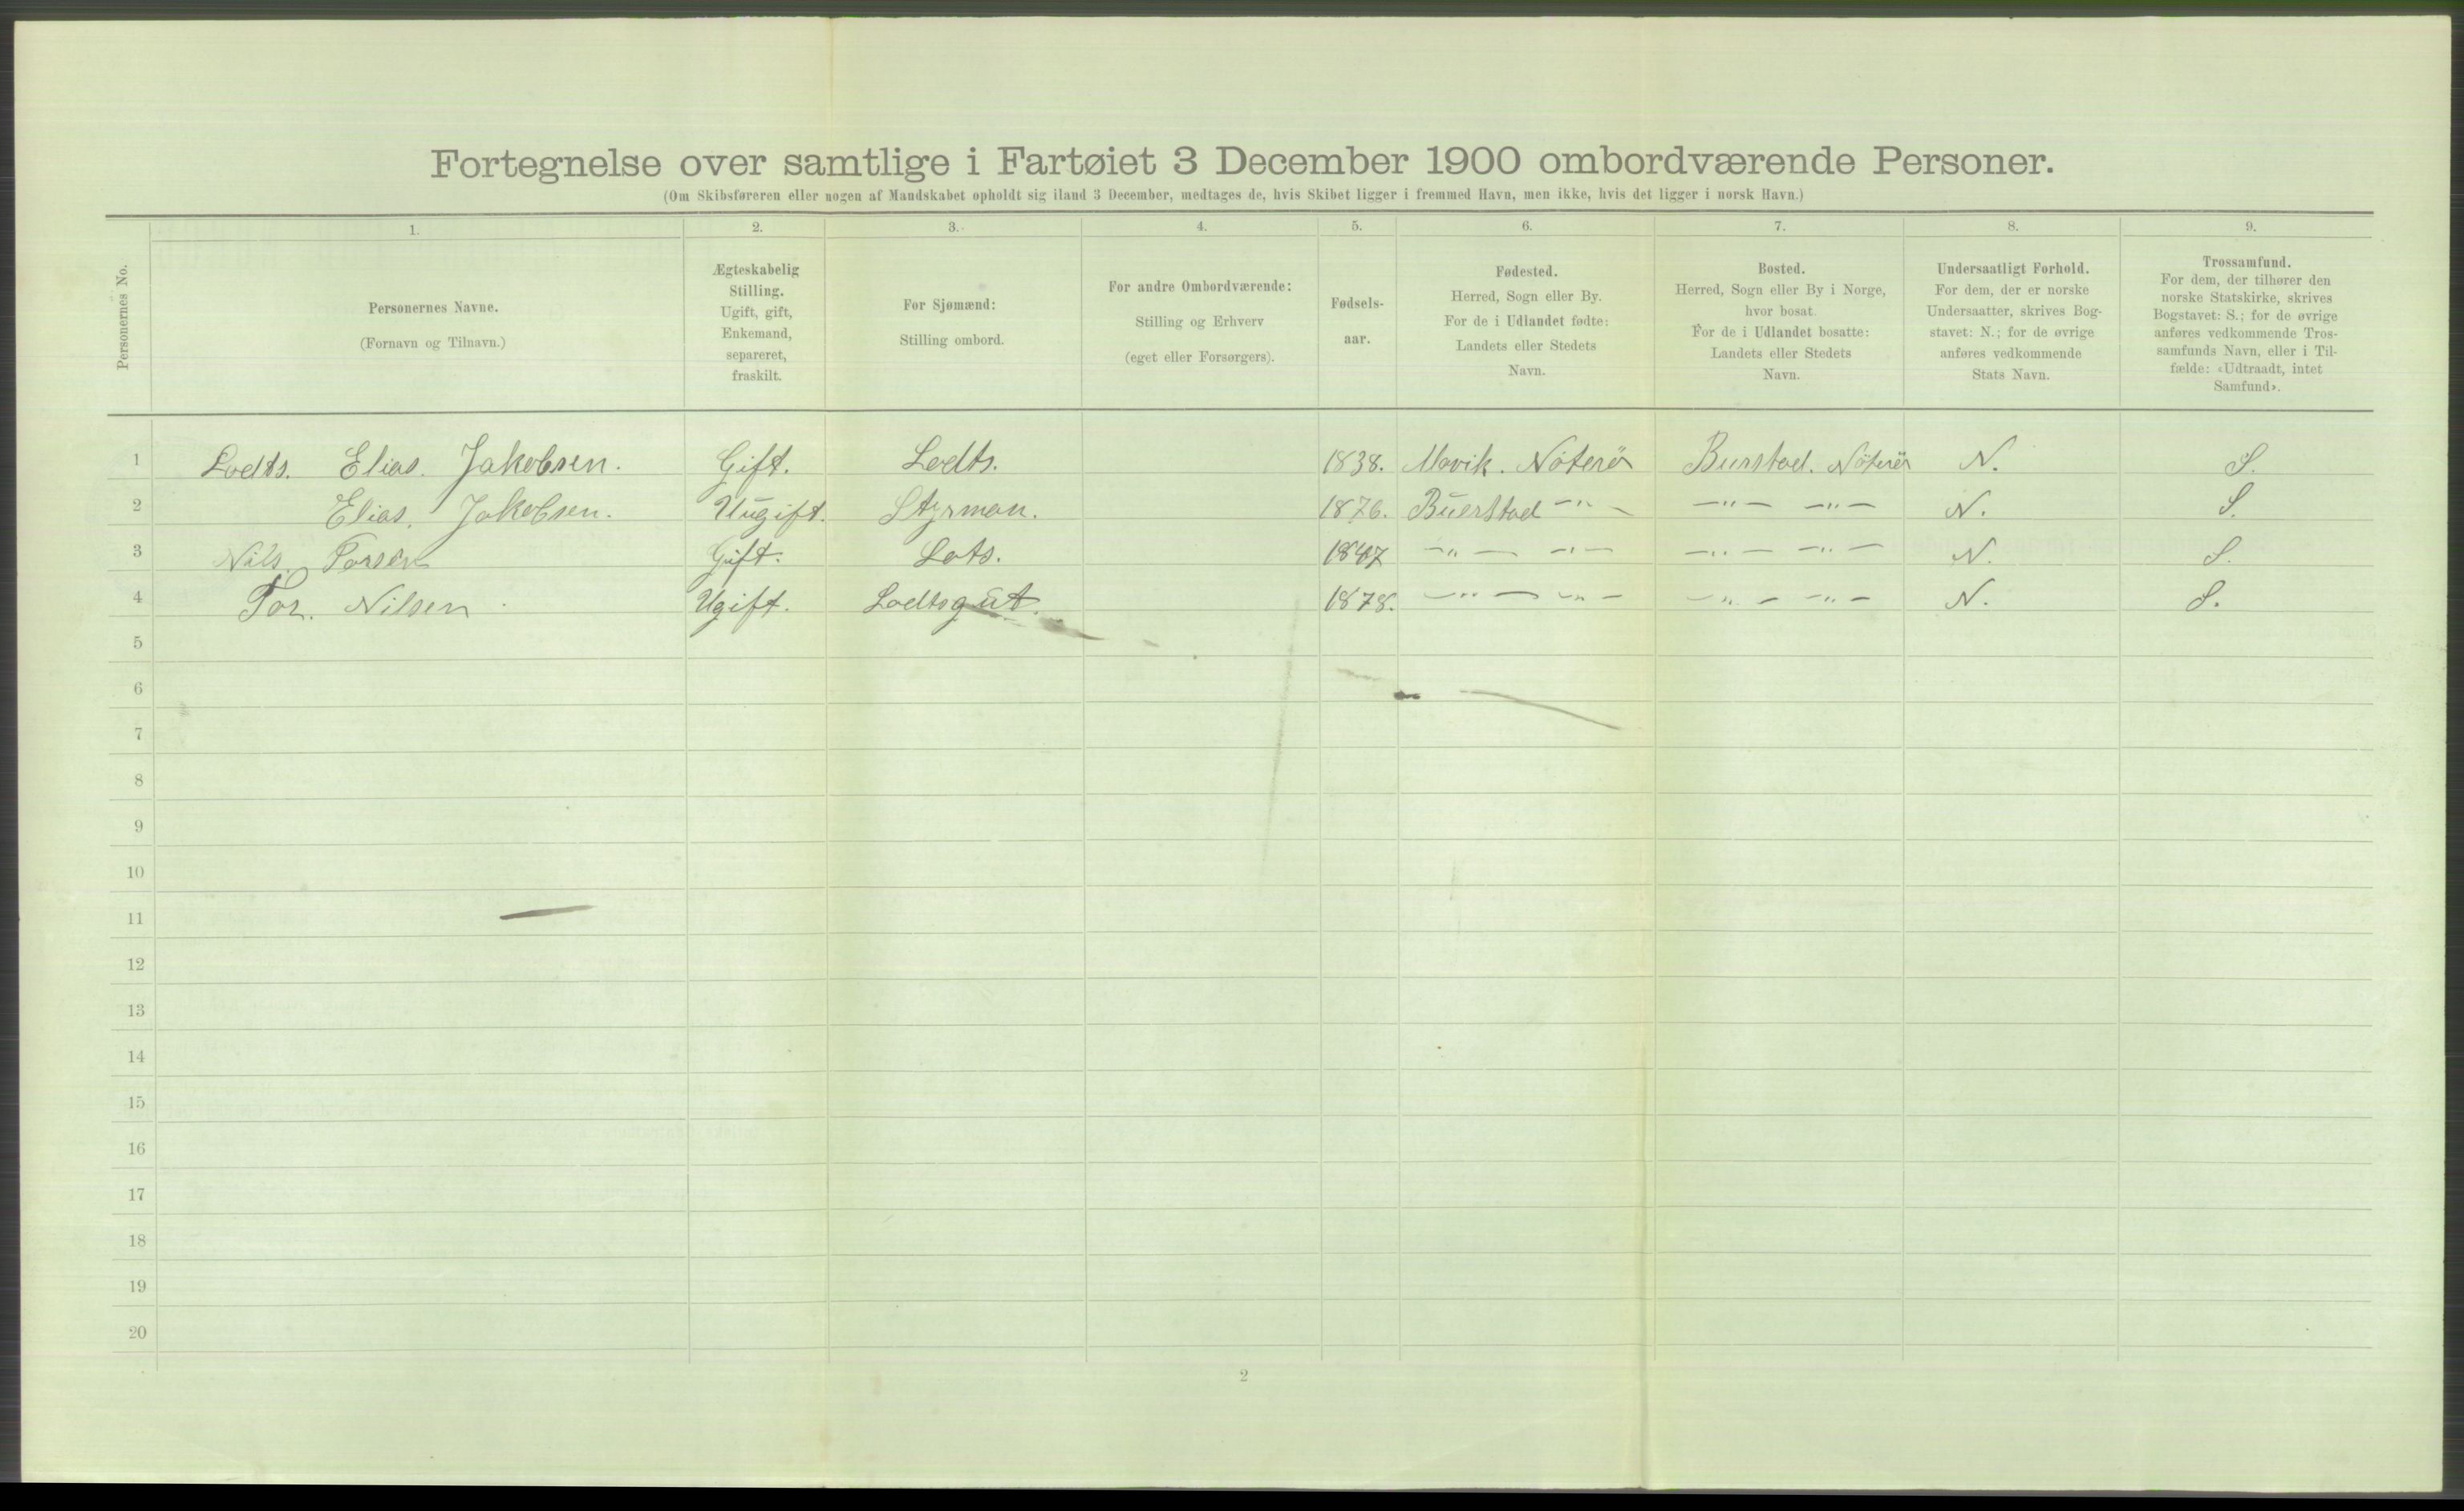 Fortegnelse over samtlige i Fartøiet 3 December 1900 ombordværende Personer.
(Om Skibsføreren eller nogen af Mandskabet opholdt sig iland 3 December, medtages de, hvis Skibet ligger i fremmed Havn, men ikke, hvis det ligger i norsk Havn.)
Personernes No.
1. 2. 3. 4. 5. 6. 7. 8. 9.
Personernes Navne.
(Fornavn og Tilnavn.)
Ægteskabelig
Stilling.
Ugift, gift,
Enkemand,
separeret,
fraskilt.
For Sjømænd:
Stilling ombord.
For andre Ombordværende:
Stilling og Erhverv
(eget eller Forsørgers).
Fødsels-
aar.
Fødested.
Herred, Sogn eller By.
For de i Udlandet fødte:
Landets eller Stedets
Navn.
Bosted.
Herred, Sogn eller By i Norge,
hvor bosat.
For de i Udlandet bosatte:
Landets eller Stedets
Navn.
Undersaatligt Forhold.
For dem, der er norske
Undersaatter, skrives Bog-
stavet: N.; for de øvrige
anføres vedkommende
Stats Navn.
Trossamfund.
For dem, der tilhører den
norske Statskirke, skrives
Bogstavet: S.; for de øvrige
anføres vedkommende Tros-
samfunds Navn, eller i Til-
fælde: «Udtraadt, intet
Samfund».
1 Lodts. Elias. Jakobsen. Gift. Lodts. 1838. Nöterör Buerstad. Nöterör N. S.
2 Elias. Jakobsen. Uugift. Styrman. 1876. Buerstad —"— —"— —"— N. S.
3 Nils. Torsen Gift. Lots. 1847 —"— —"— —"— —"— N. S.
4 Tor. Nilsen Ugift. Lodtsgut. 1878. —"— —"— —"— —"— N. S.
5
6
7
8
9
10
11
12
13
14
15
16
17
18
19
20
2